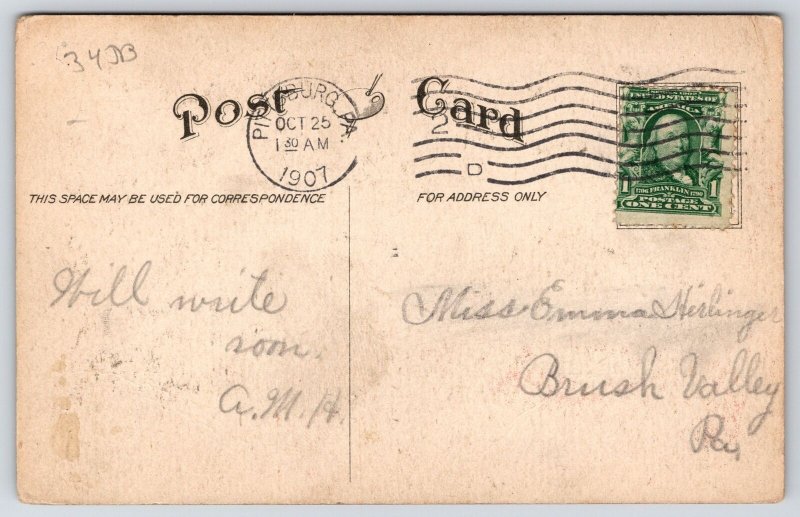 34DB
Post Card
PITTSBURG, PA.
OCT 25
1 30 AM
1907
2
D
UNITED STATES OF
AMERICA
1 1706 FRANKLIN 1790 1
POSTAGE
ONE CENT
THIS SPACE MAY BE USED FOR CORRESPONDENCE
FOR ADDRESS ONLY
Will write
soon.
A.M.H.
Miss Emma Hirlinger
Brush Valley
Pa,